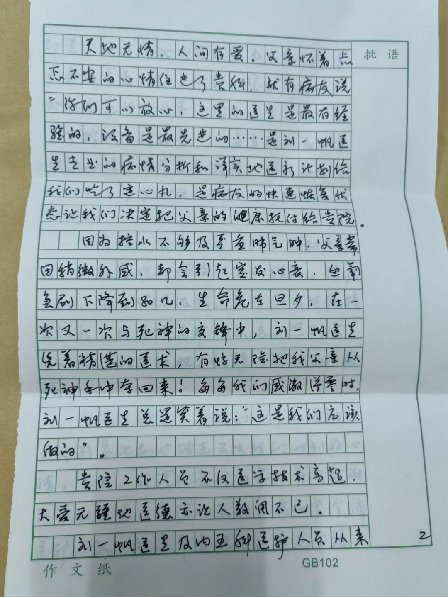 批语
天地无情，人间有爱，父亲怀着忐
忑不安的心情住进了贵科，就有病友说
“你们可以放心，这里的医生是最有经
验的，设备是最先进的……是刘一帆医
生专业的病情分析和详实地医疗计划给
我们吃了定心丸，是病友的快速恢复状
态让我们决定把父亲的健康托付给贵院。
因为控水不够及重度肺气肿，父亲常
因稍微外感，都会引起室发心衰，血氧
急剧下降到80几，生命危在旦夕，在一
次又一次与死神的交锋中，刘一帆医生
凭着精湛的医术，有惊无险地我父亲从
死神手中夺回来！每每我们感激涕零时
刘一帆医生总是笑着说：“这是我们应该
做的”。
贵院工作人员不仅医学技术高超，
大爱无疆地医德亦让人敬佩不已。
刘一帆医生及内五科医护人员从来
2
作文纸
GB102